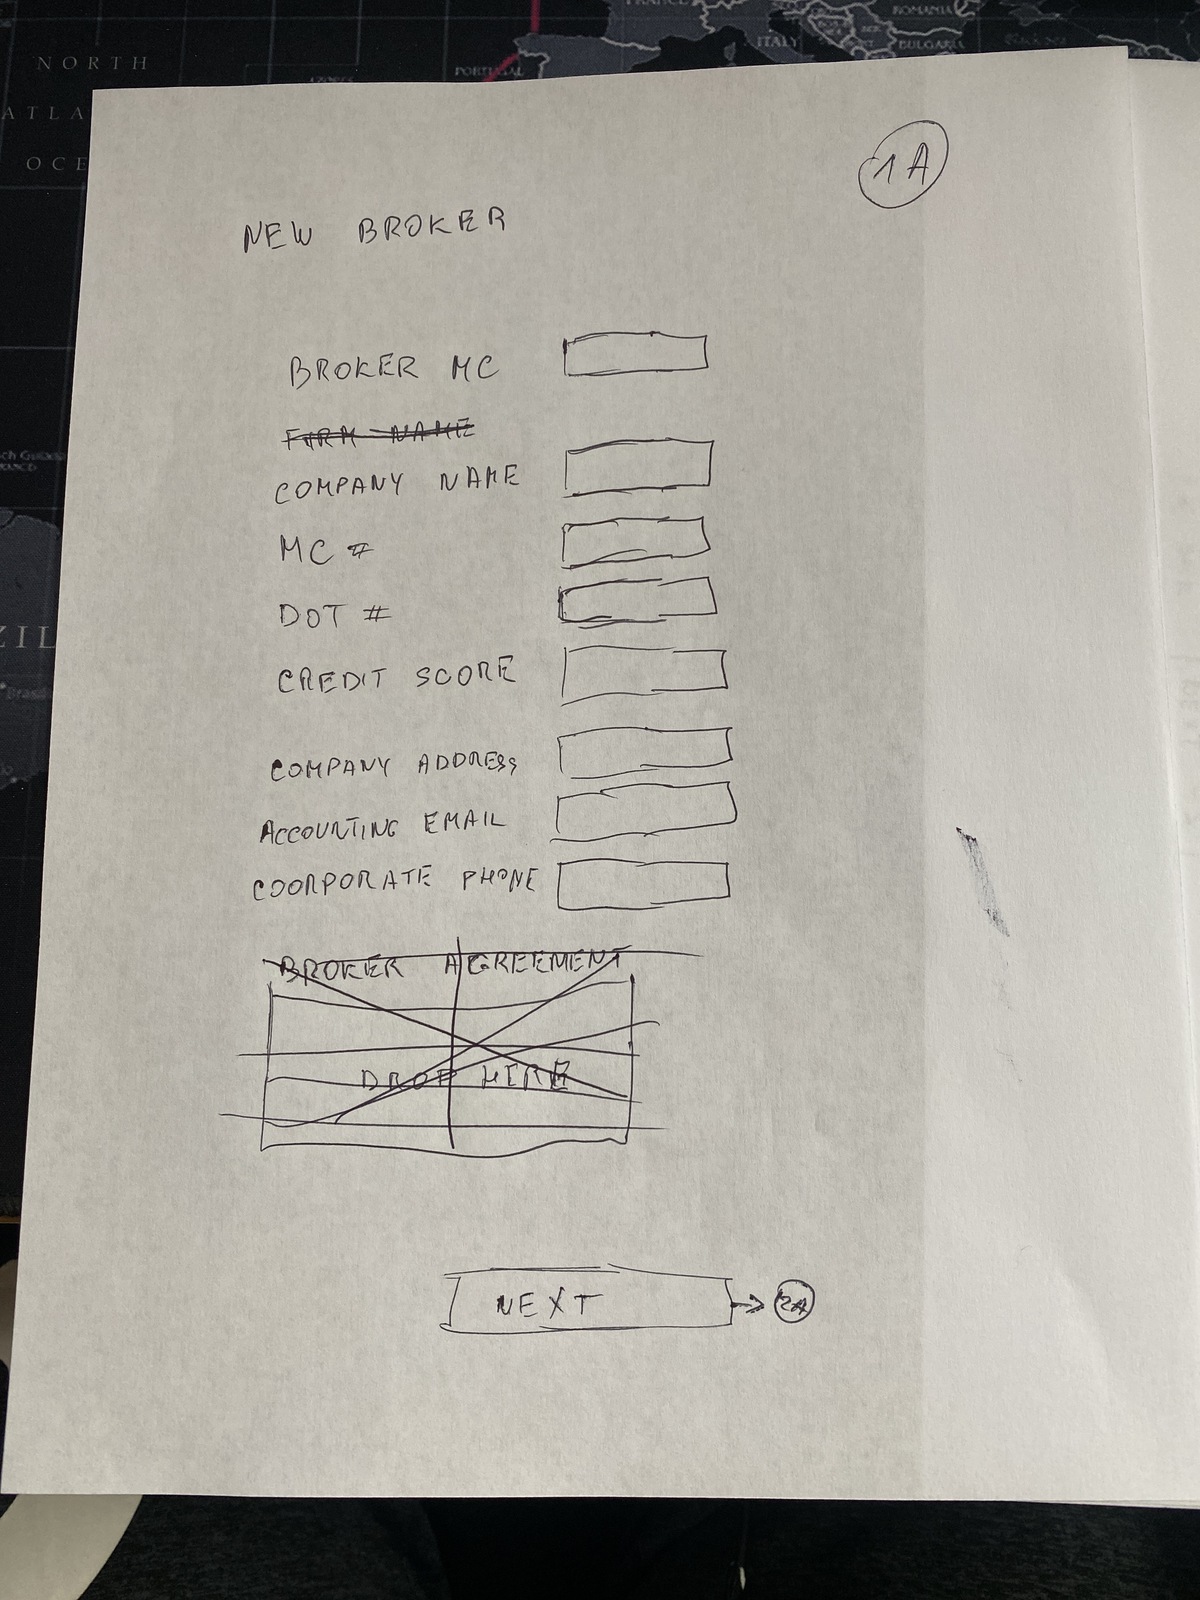 NORTH
ATLA
OCE
PORTUGAL
ITALY
ROMANIA
BULGARIA
ZIL
1A
NEW BROKER
BROKER MC
FIRM NAME
COMPANY NAME
MC #
DOT #
CREDIT SCORE
COMPANY ADDRESS
ACCOUNTING EMAIL
COORPORATE PHONE
BROKER AGREEMENT
DROP HERE
NEXT → 2A